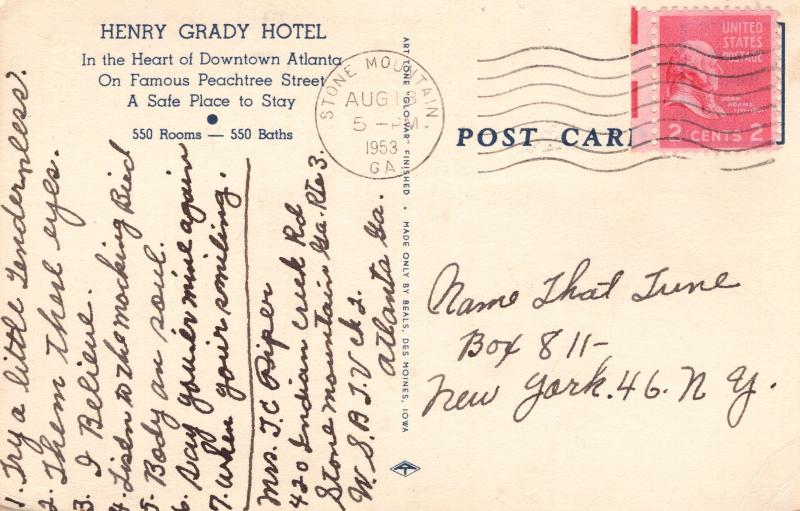 HENRY GRADY HOTEL
In the Heart of Downtown Atlanta
On Famous Peachtree Street
A Safe Place to Stay
550 Rooms — 550 Baths
1. Try a little Tenderness?
2. Them there eyes.
3. I Believe.
4. Lisen to the mocking Bird
5. Body an soul.
6. Say you'er mine again
7. When your smiling.
Mrs. J.C. Piper
420 Indian Creek Rd
Stone mountain Ga. Rte 3.
W.S.B T.V ch 2.
Atlanta Ga.
ARTTONE "GLO-VAR" FINISHED • MADE ONLY BY BEALS, DES MOINES, IOWA
STONE MOUNTAIN
AUG 18
5 - PM
1953
GA
UNITED
STATES
POSTAGE
JOHN
ADAMS
2 CENTS 2
POST CAR
Name That Tune
Box 811-
New York. 46. N Y.